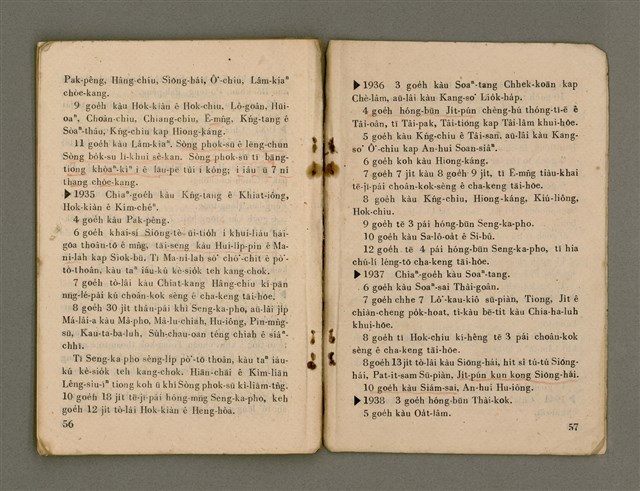 Pak-pêng, Hâng-chiu, Siōng-hái, Ò͘-chiu, Lâm-kiaⁿ
chòe-kang.
9 goe̍h kàu Hok-kiàn ê Hok-chiu, Lô-goân, Hūi-
oaⁿ, Choân-chiu, Chiang-chiu, Ē-mn̂g, Kńg-tang ê
Sòaⁿ-thâu, Kńg-chiu kap Hiong-káng.
11 goe̍h kàu Lâm-kiaⁿ. Sòng phok-sū ê lêng-chun
Sòng bo̍k-su lī-khui sè-kan. Sòng phok-sū tī bāng-
tiong khòaⁿ-kìⁿ i ê lāu-pē tùi i kóng; i iáu ū 7 nî
thang chòe-kang.
▶1935 Chiaⁿ-goe̍h kàu Kńg-tang ê Khiat-iông,
Hok-kiàn ê Kim-chéⁿ.
4 goe̍h kàu Pak-pêng.
6 goe̍h khai-sí Siōng-tè-ūi-tio̍h i khui-lí āu hái-
gōa thoân-tō ê mn̂g, tāi-seng kàu Hui-li̍p-pin ê Ma-
ní-lah kap Siok-bū. Tī Ma-ní-lah só͘ chó͘-chit ê pò͘-
tō-thoân, kàu taⁿ iáu-kú kè-sio̍k teh kang-chok.
7 goe̍h tò-lâi kàu Chiat-kang Hâng-chiu kí-pān
mn̄g-lé-pài kù choân-kok sèng ê cha-keng tāi-hōe.
8 goe̍h 30 ji̍t thâu-pái khì Seng-ka-pho, aū-lâi ji̍p
Má-lâi-a kàu Má-pho, Má-lu-chiah, Hu-iông, Pin-mn̂g-
sū, Kau-ta-ba-luh, Sùb-chau-oan téng chiah ê siâⁿ-
chhī.
Tī Seng-ka-pho sèng-li̍p pò͘-tō thoân, kàu taⁿ iáu-
kú kè-sio̍k teh kang-chok. Hiān-chāi ê Kim-liân
Lêng-siu-īⁿ tiong koh ū khí Sòng phok-sū kì-liām-tn̂g.
10 goe̍h 18 ji̍t tē-jī-pái hóng-mn̄g Seng-ka-pho, keh
goe̍h 12 ji̍t tò-lâi Hok-kiàn ê Heng-hòa.
56
▶1936 3 goe̍h kàu Soaⁿ-tang Chhek-koān kap
Chè-lâm, aū-lâi kàu Kang-so͘ Lio̍k-ha̍p.
4 goe̍h hóng-būn Ji̍t-pún chèng-hú thóng-tī-ē ê
Tâi-oân, tī Tâi-pak, Tâi-tiong kap Tâi-lâm khui-hōe.
5 goe̍h kàu Kńg-chiu ê Tâi-san. aū-lâi kàu Kang-
so͘ Ò͘-chiu kap An-hui Soan-siâⁿ.
6 goe̍h koh kàu Hiong-káng.
7 goe̍h 7 ji̍t kàu 8 goe̍h 9 ji̍t, tī Ē-mn̂g tiàu-khai
tē-jī-pái choân-kok-sèng ê cha-keng tāi-hōe.
8 goe̍h kàu Kńg-chiu, Hiong-káng, Kiú-liông,
Hok-chiu.
9 goe̍h tē 3 pái hóng-būn Seng-ka-pho.
10 goe̍h kàu Sa-lô-oa̍t ê Si-bū.
12 goe̍h tē 4 pái hóng-būn Seng-ka-pho, tī hia
chú-lí lêng-tō cha-keng tāi-hōe.
▶1937 Chiaⁿ-goe̍h kàu Soaⁿ-tang.
6 goe̍h kàu Soaⁿ-sai Thài-goân.
7 goe̍h chhe 7 Lô͘-kau-kiô sū-piàn, Tiong, Ji̍t ê
chiàn-cheng po̍k-hoat, tì-kàu bē-tit kàu Chia-ha-luh
khui-hōe.
8 goe̍h tī Hok-chiu kí-hêng tē 3 pái choân-kok
sèng ê cha-keng tāi-hōe.
8 goe̍h 13 ji̍t tò-lâi kàu Siōng-hái, hit sî tú-tú Siōng-
hái, Pat-it-sam Sū-piàn, Ji̍t-pún kun kong Siōng-hái.
10 goe̍h kàu Siám-sai, An-hui Hu-iông.
▶1938 3 goe̍h hóng-būn Thài-kok.
5 goe̍h kàu Oa̍t-lâm.
57